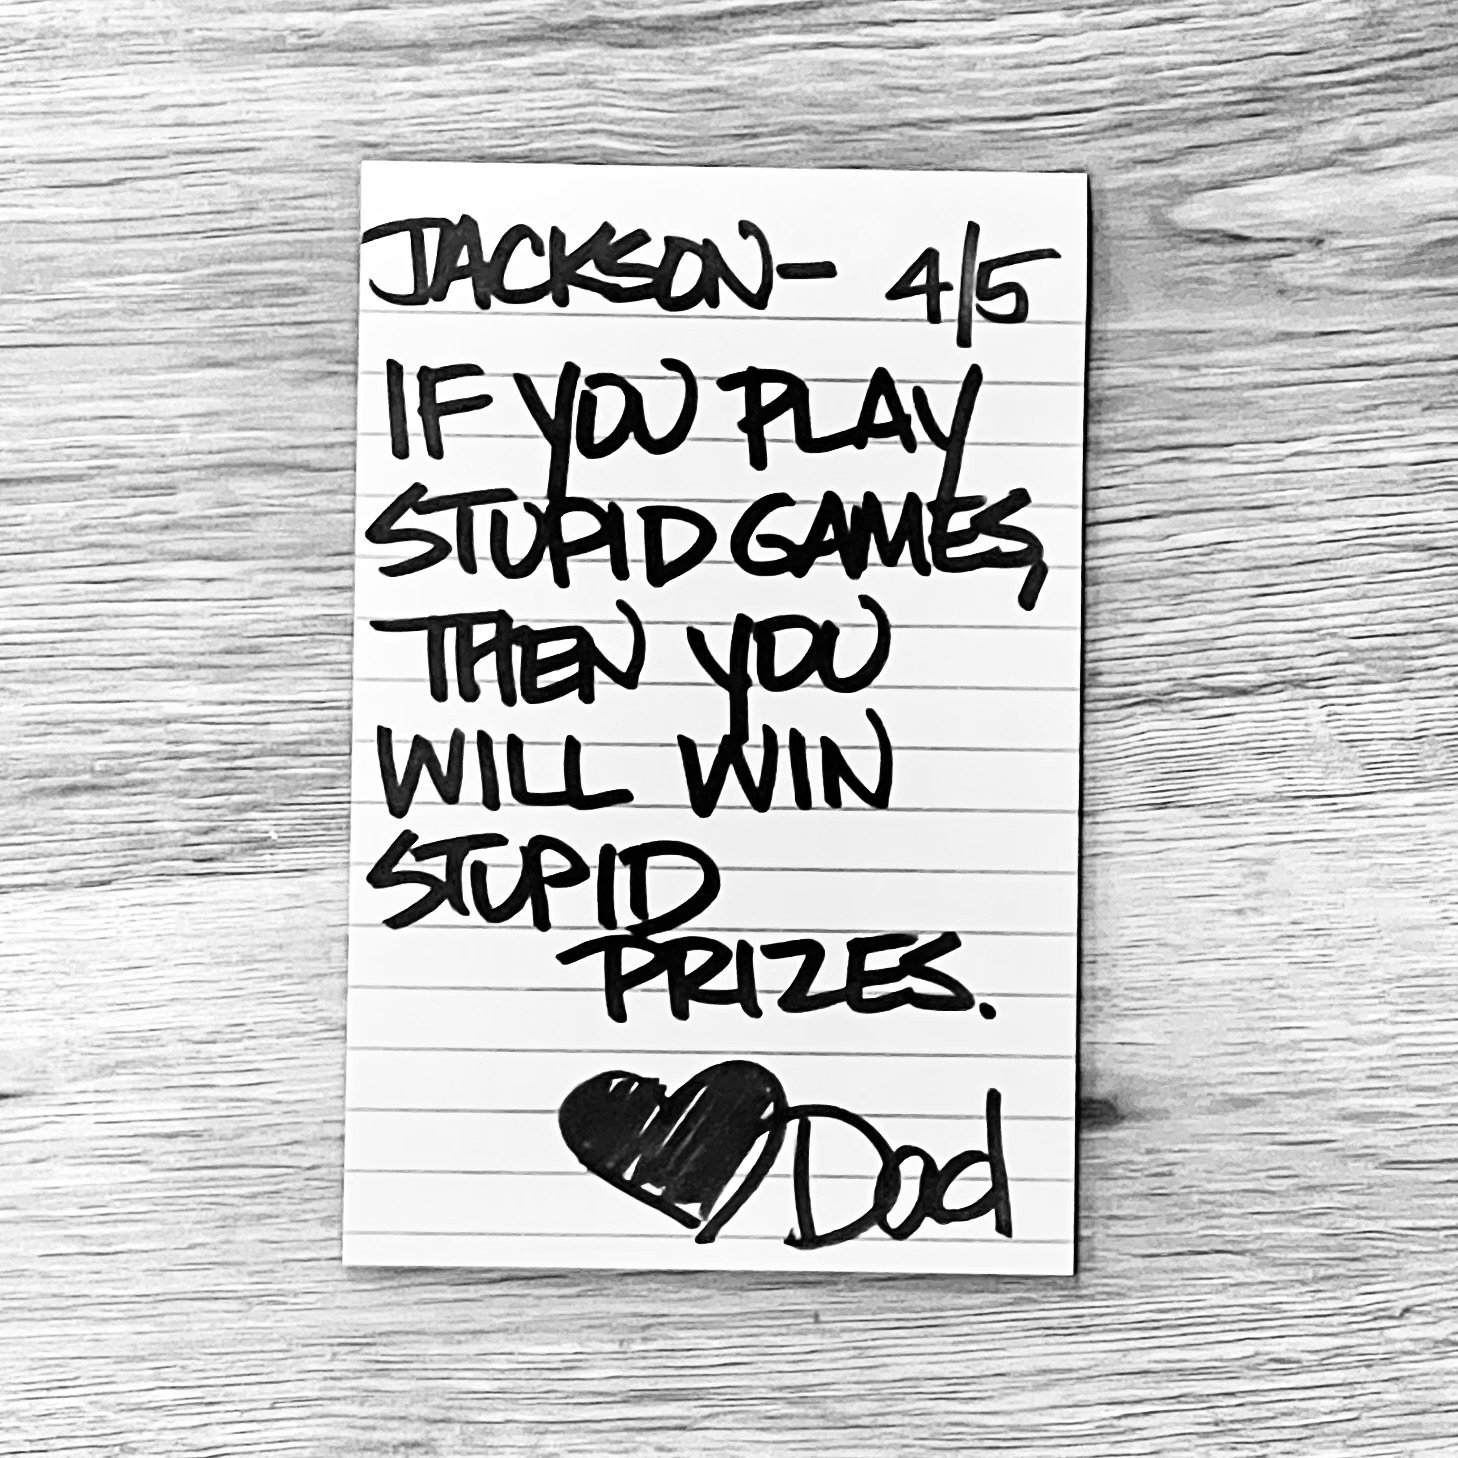 JACKSON- 4/5
IF YOU PLAY
STUPID GAMES,
THEN YOU
WILL WIN
STUPID
PRIZES.
Dad